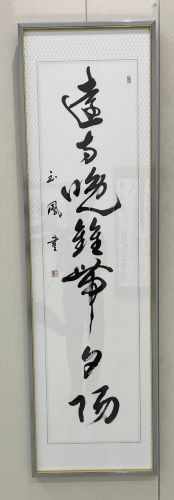 遠寺晩鐘帯夕陽
玉鳳書